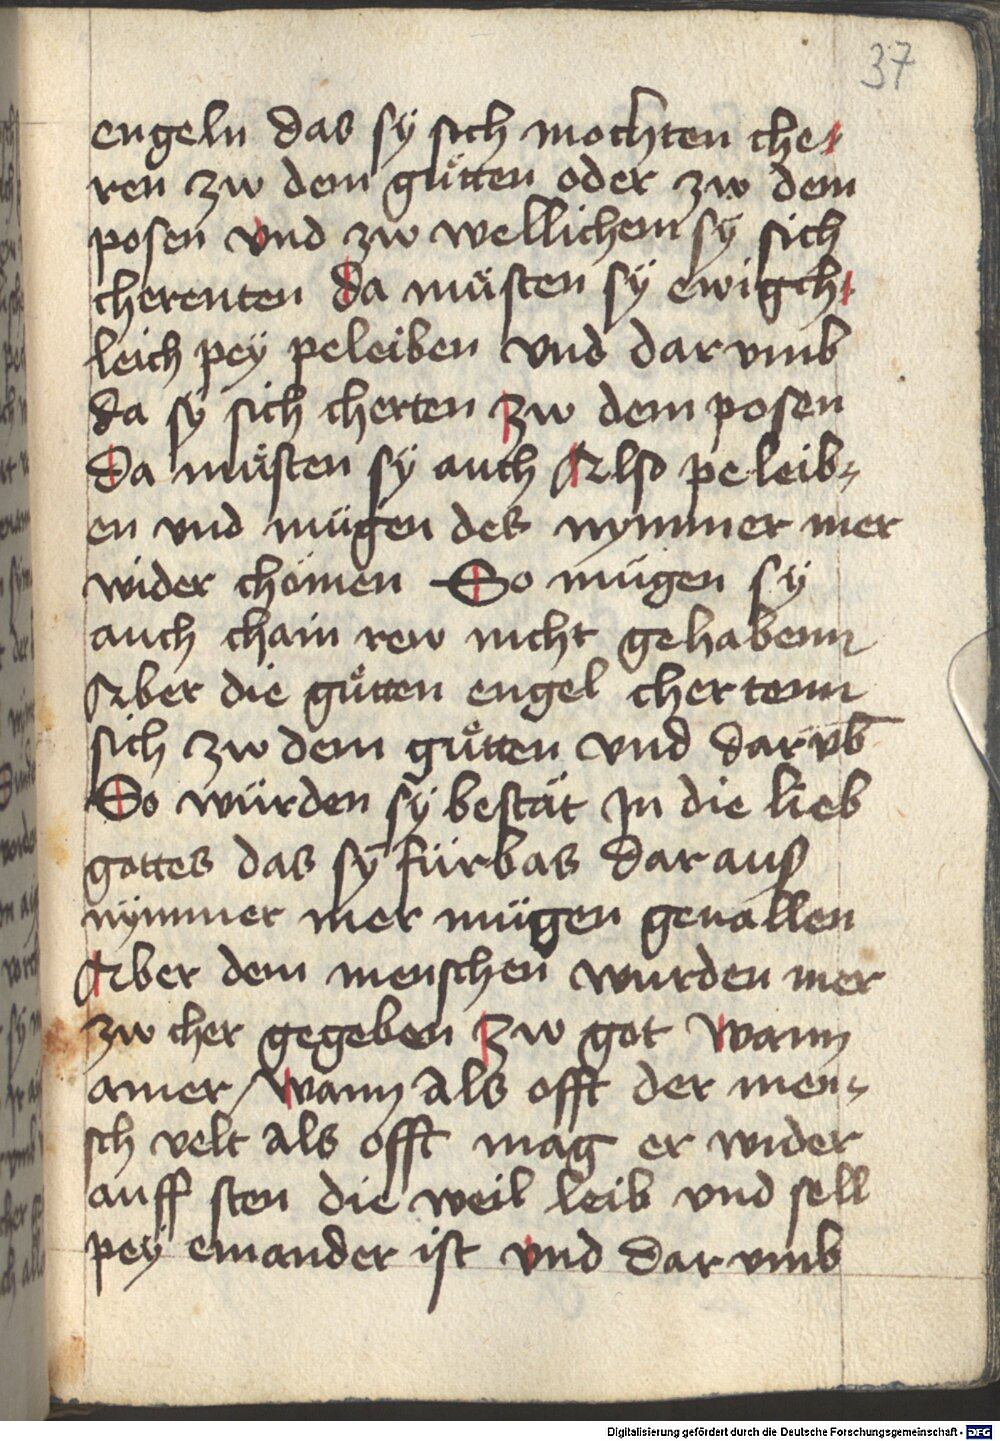 37
engeln das sÿ sich mochten che-
ren zw dem guͤtten oder zw dem
posen vnd zw wellichem sÿ sich
cherenten da muͤsten sÿ ewigch-
leich peÿ peleiben vnd dar vmb
da sÿ sich cherten zw dem posen
Da muͤsten sÿ auch Also peleib-
en vnd mügen des nymmer mer
wider chömen So mügen sÿ
auch chain rew nicht gehabenn
Aber die guͤtten engel chertenn
sich zw dem guͤtten vnd darvb̄
So würden sÿ bestät In die lieb
gottes das sÿ fürbas dar aus
nÿmmer mer mügen geuallen
Aber dem menschen wurden mer
zw cher gegeben Zw got Wann
ainer / Wann Als offt der men-
sch velt Als offt mag er wider
auff sten die weil leib vnd sell
peÿ einander ist vnd dar vmb
Digitalisierung gefördert durch die Deutsche Forschungsgemeinschaft - DFG